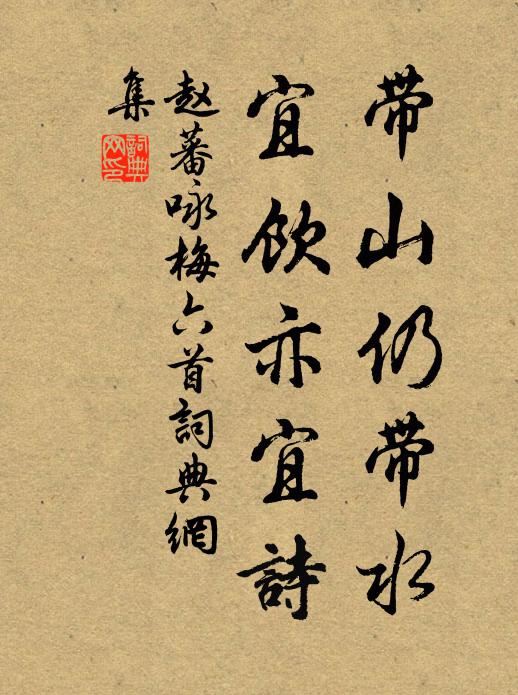 带山仍带水
宜饮亦宜詩
赵蕃咏梅六首詞典網
集
詞典
网印